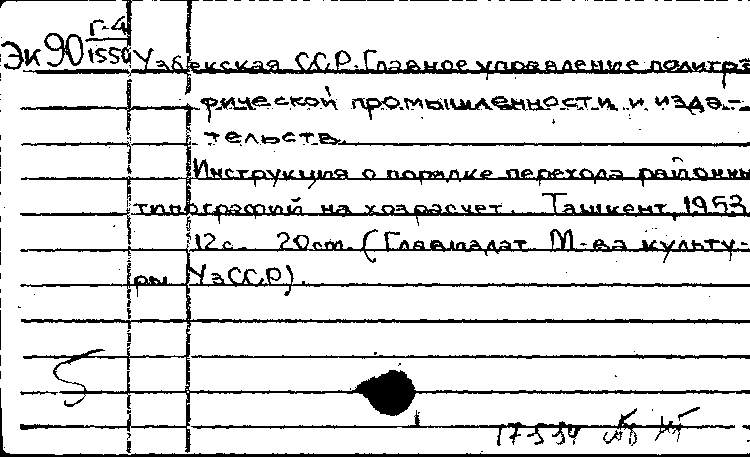 Эк90 Г-4
1550
Узбекская ССР. Главное управление полигра
фической промышленности и изда-
тельств.
Инструкция о порядке перехода районны
типографий на хозрасчет. Ташкент, 1953
12 с. 20 см. (Главиздат М-ва культу-
ры УзССР).
5
17 5 54